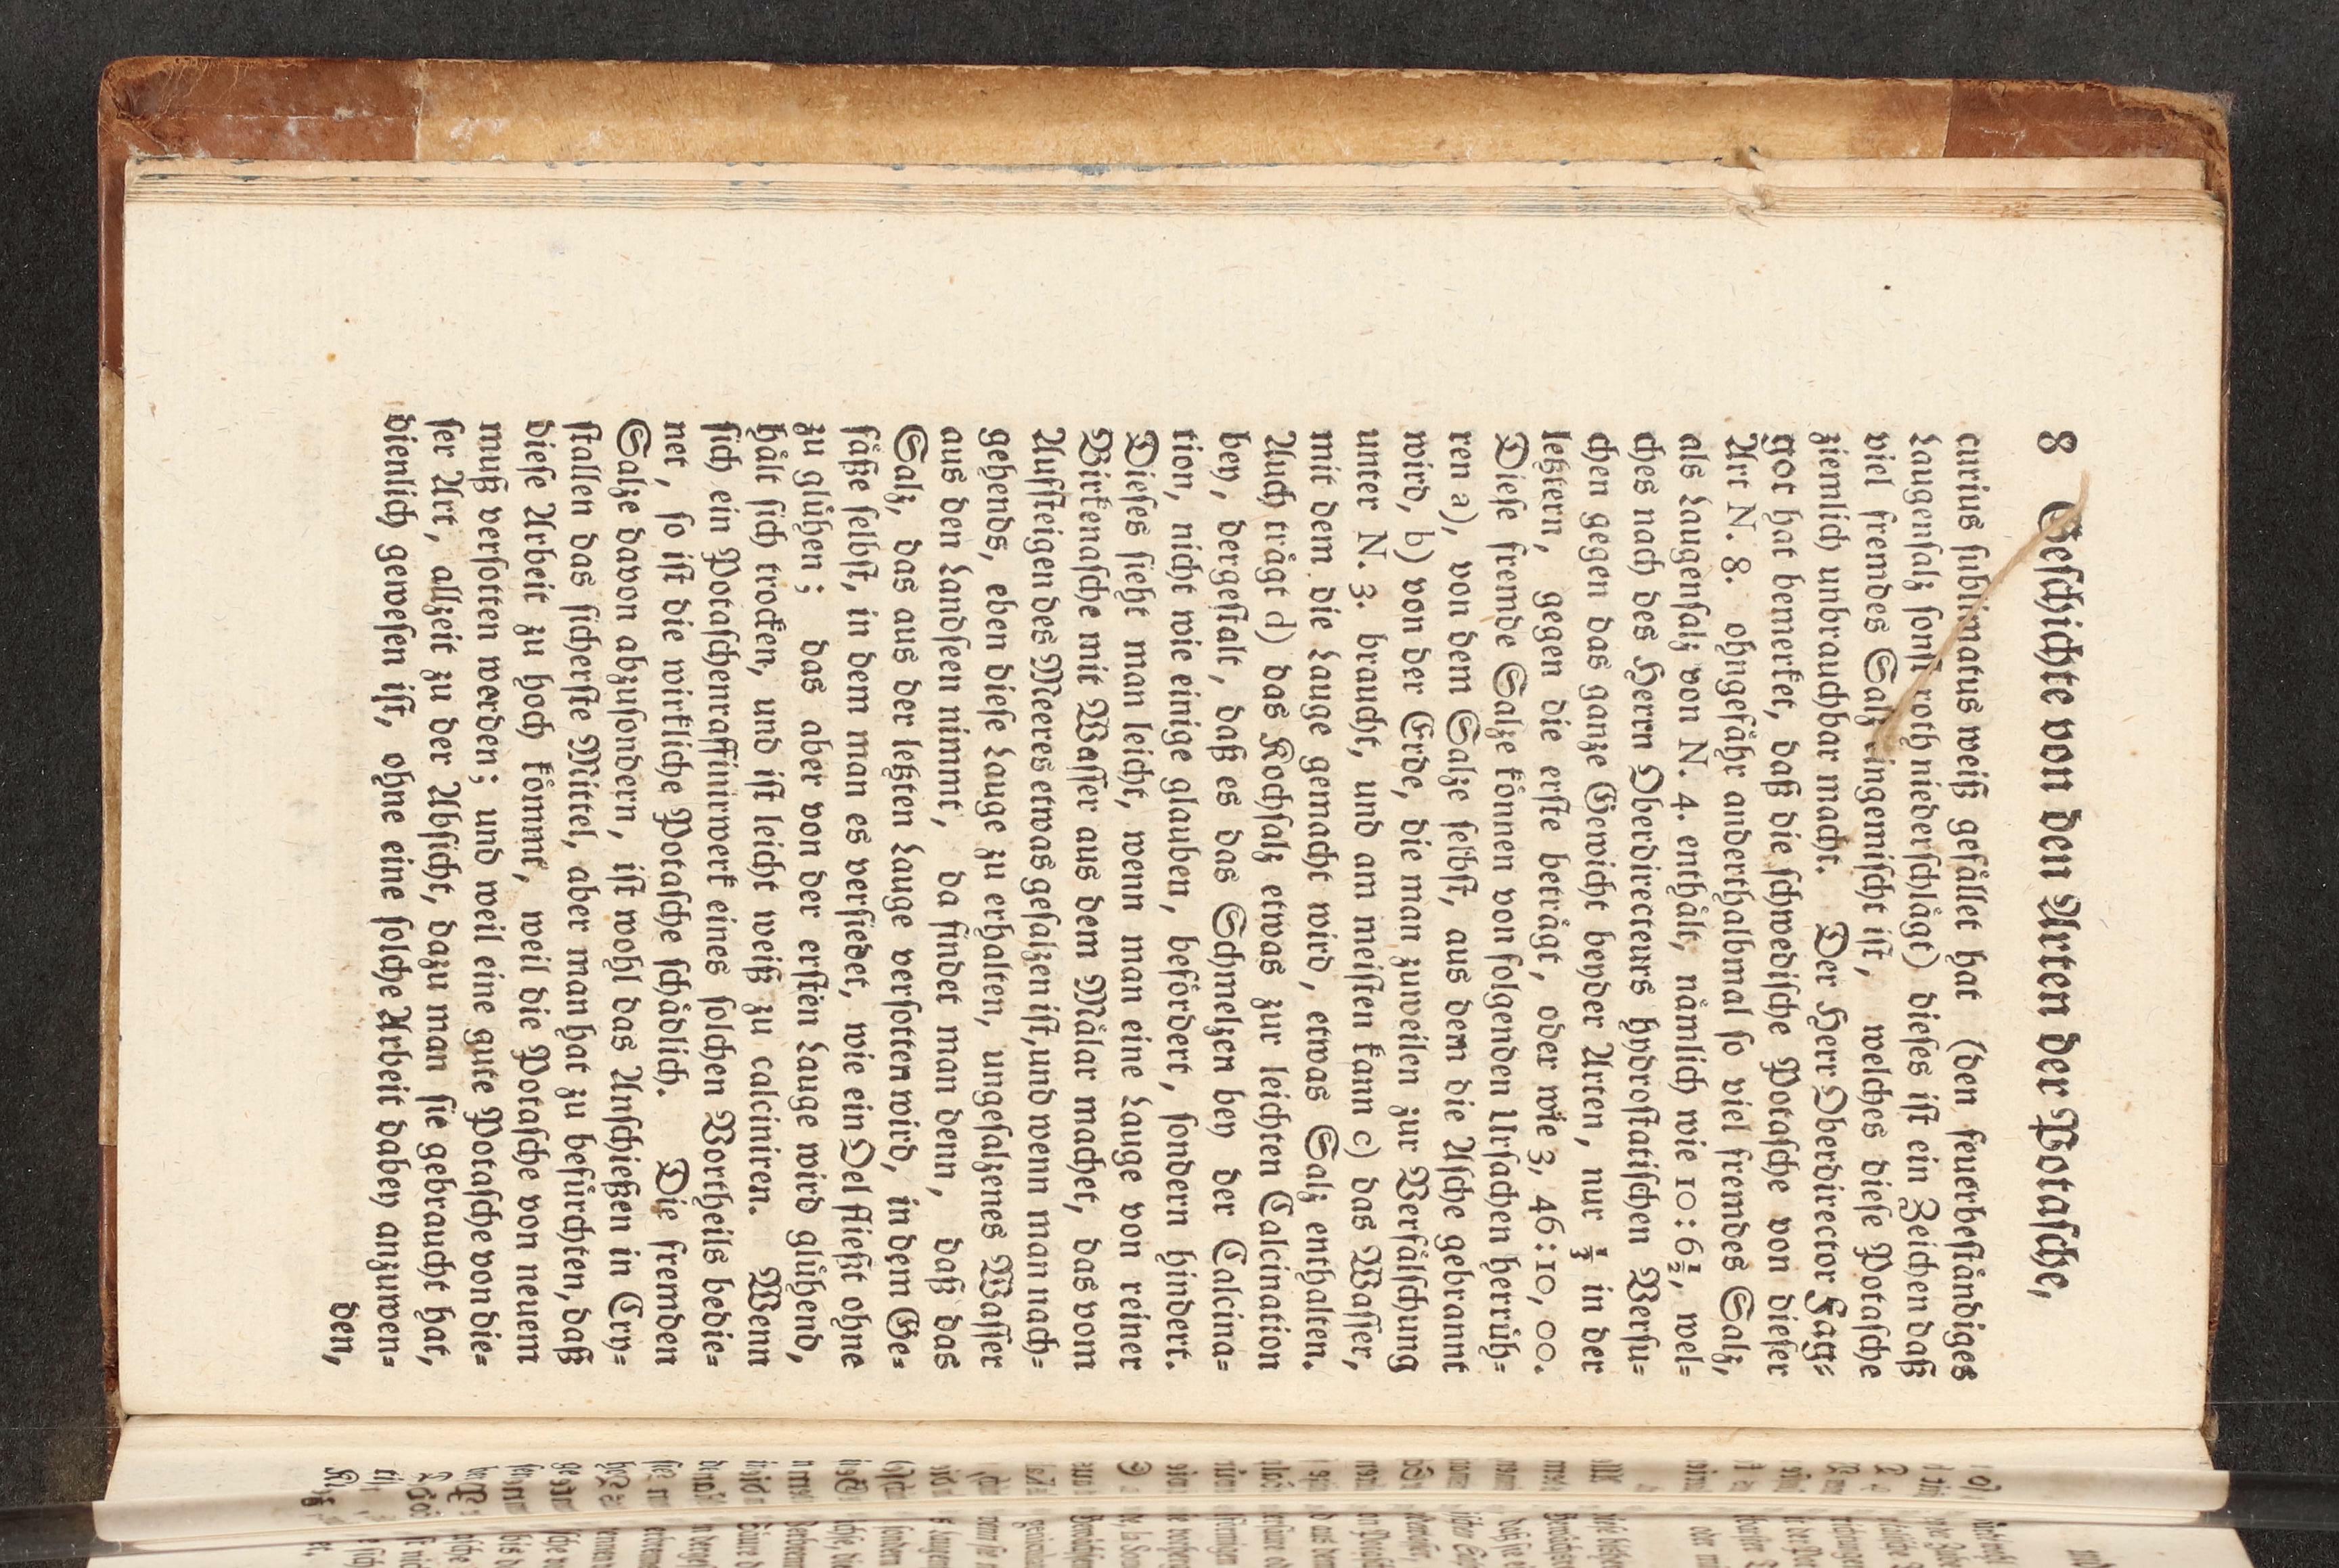 8 Geschichte von den Arten der Potasche,
curius sublimatus weiß gefället hat (den feuerbeständiges
Laugensalz sonst roth niederschlägt) dieses ist ein Zeichen daß
viel fremdes Salz eingemischt ist, welches diese Potasche
ziemlich unbrauchbar macht. Der Herr Oberdirector Fagg-
got hat bemerket, daß die schwedische Potasche von dieser
Art N. 8. ohngefähr anderthalbmal so viel fremdes Salz,
als Laugensalz von N. 4. enthält, nämlich wie 10:6½, wel-
ches nach des Herrn Oberdirecteurs hydrostatischen Versu-
chen gegen das ganze Gewicht beyder Arten, nur ⅓ in der
letztern, gegen die erste beträgt, oder wie 3, 46:10, 00.
Diese fremde Salze können von folgenden Ursachen herrüh-
ren a), von dem Salze selbst, aus dem die Asche gebrannt
wird, b) von der Erde, die man zuweilen zur Verfälschung
unter N. 3. braucht, und am meisten kann c) das Wasser,
mit dem die Lauge gemacht wird, etwas Salz enthalten.
Auch trägt d) das Kochsalz etwas zur leichten Calcination
bey, dergestalt, daß es das Schmelzen bey der Calcina-
tion, nicht wie einige glauben, befördert, sondern hindert.
Dieses sieht man leicht, wenn man eine Lauge von reiner
Birkenasche mit Wasser aus dem Mälar machet, das vom
Aufsteigen des Meeres etwas gesalzen ist, und wenn man nach-
gehends, eben diese Lauge zu erhalten, ungesalzenes Wasser
aus den Landseen nimmt, da findet man denn, daß das
Salz, das aus der letzten Lauge versotten wird, in dem Ge-
fäße selbst, in dem man es versiedet, wie ein Oel fließt ohne
zu glühen; das aber von der ersten Lauge wird glühend,
hält sich trocken, und ist leicht weiß zu calciniren. Wenn
sich ein Potaschenraffinirwerk eines solchen Vortheils bedie-
net, so ist die wirkliche Potasche schädlich. Die fremden
Salze davon abzusondern, ist wohl das Anschießen in Cry-
stallen das sicherste Mittel, aber man hat zu befürchten, daß
diese Arbeit zu hoch kömmt, weil die Potasche von neuem
muß versotten werden; und weil eine gute Potasche von die-
ser Art, allzeit zu der Absicht, dazu man sie gebraucht hat,
dienlich gewesen ist, ohne eine solche Arbeit dabey anzuwen-
den,